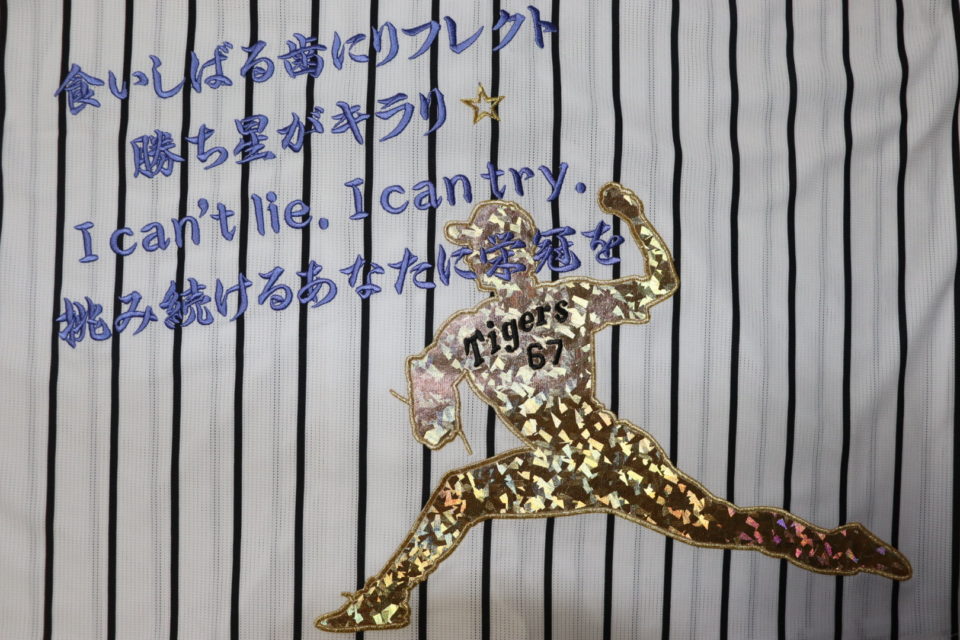 食いしばる歯にリフレクト
勝ち星がキラリ☆
I can't lie. I can try.
挑み続けるあなたに栄冠を
Tigers
67